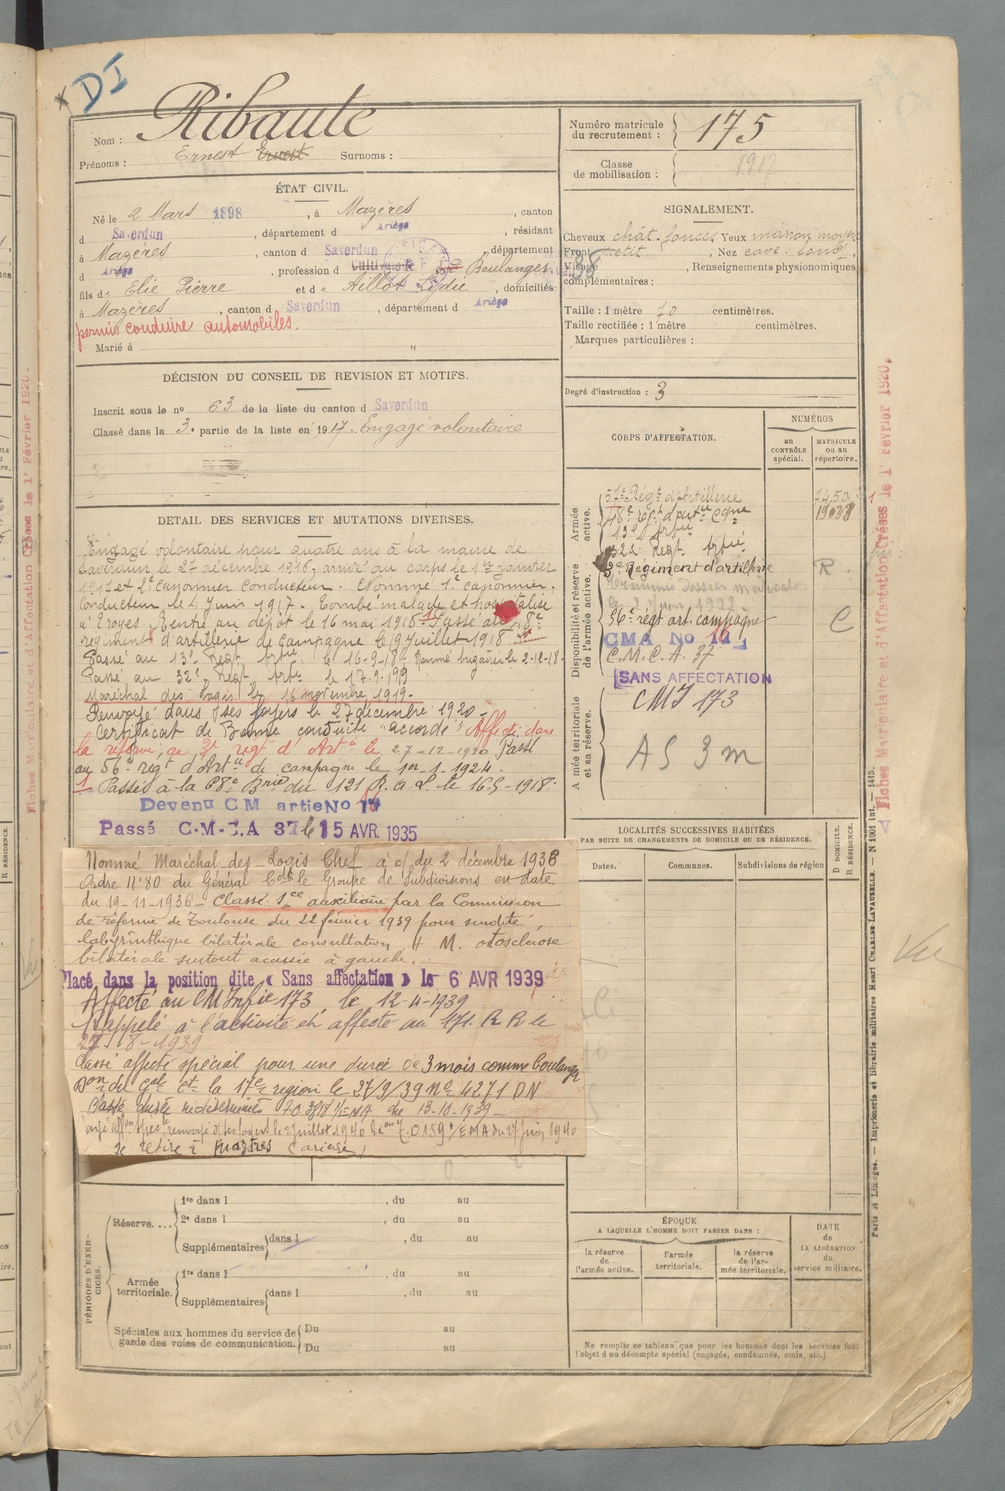 DI
Nom : Ribaute
Prénoms : Ernest Ernest Surnoms :
Numéro matricule du recrutement : 175
Classe de mobilisation : 1917
ÉTAT CIVIL.
Né le 2 Mars 1898, à Mazères, canton
d Saverdun, département d Ariège, résidant
à Mazères, canton d Saverdun, département
d Ariège, profession d Cultivateur Boulanger
fils d Elie Pierre et d Lydie, domiciliés
à Mazères, canton d Saverdun, département d Ariège
permis conduire automobiles.
Marié à
SIGNALEMENT.
Cheveux chât. foncés Yeux marron moyen
Front petit, Nez cave
Visage, Renseignements physionomiques
complémentaires :
Taille : 1 mètre 70 centimètres.
Taille rectifiée : 1 mètre centimètres.
Marques particulières :
Degré d'instruction : 3
DÉCISION DU CONSEIL DE REVISION ET MOTIFS.
Inscrit sous le nº 63 de la liste du canton d Saverdun
Classé dans la 3e partie de la liste en 1917. Engagé volontaire
DÉTAIL DES SERVICES ET MUTATIONS DIVERSES.
Engagé volontaire pour quatre ans à la mairie de
Saverdun le 27 décembre 1916, arrivé au corps le 1er janvier
1917 et 2e canonnier conducteur. Nommé 1e canonnier
conducteur le 4 juin 1917. Tombé malade et hospitalisé
à Troyes Rentré au dépôt le 16 mai 1918 Passé au 18e
régiment d'artillerie de Campagne le 9 juillet 1918
Passé au 13e Régt le 16-9-18 Nommé brigadier le 2-12-18
Passé au 32e Régt le 17.9.19
Maréchal des logis le 16 novembre 1919.
Renvoyé dans ses foyers le 27 décembre 1920
Certificat de Bonne conduite "accordé" Affecté dans
la réserve au 3e regt d'Artie le 27-12-1920 Passé
au 56e regt d'Artie de campagne le 1er-1-1924.
1 Passé à la 68e Brie du 121 R.A.L. le 16-5-1918.
Devenu CM artie No 17
Passé C.M.C.A 37 le 15 AVR 1935
Nommé Maréchal des Logis Chef à c/ du 2 décembre 1936
Ordre Nº80 du Général Cdt le Groupe de Subdivisions en date
du 19-11-1936 - Classé Sce auxiliaire par la Commission
de réforme de Toulouse du 22 février 1939 pour surdité
labyrinthique bilatérale consultation M. otosclérose
bilatérale surtout accusée à gauche.
Placé dans la position dite « Sans affectation » le 6 AVR 1939
Affecté au CM Infie 173 le 12-4-1939
Rappelé à l'activité et affecté au 171. R R le
27-8-1939
Classé affecté spécial pour une durée de 3 mois comme boulanger
Don du Gal Ct la 17e région le 27/9/39 Nº 4271 DN
du 13-10-1939
renvoyé le 2 juillet 1940 du 27 juin 1940
se retire à Mazères (Ariège)
CORPS D'AFFECTATION.
NUMÉROS
au CONTRÔLE spécial.
MATRICULE ou au répertoire.
Armée active.
57e Régt d'Artillerie 7450
18e Rgt d'artie Cgne
13e
32e Regt
Disponibilité et réserve de l'armée active.
3e Régiment d'artillerie R
56e regt art. campagne C
CMA No 17
C.M.C.A. 37
SANS AFFECTATION
Armée territoriale et sa réserve.
CMI 173
AS 3 m
LOCALITÉS SUCCESSIVES HABITÉES
PAR SUITE DE CHANGEMENTS DE DOMICILE OU DE RÉSIDENCE.
Dates. Communes. Subdivisions de région
D. DOMICILE. R. RÉSIDENCE.
PÉRIODES D'EXERCICES.
Réserve....
1re dans l , du au
2e dans l , du au
Supplémentaires dans l , du au
Armée territoriale.
1re dans l , du au
Supplémentaires dans l , du au
Spéciales aux hommes du service de garde des voies de communication.
Du au
Du au
ÉPOQUE
A LAQUELLE L'HOMME DOIT PASSER DANS :
la réserve de l'armée active.
l'armée territoriale.
la réserve de l'armée territoriale.
DATE de LA LIBÉRATION du service militaire.
Ne remplir ce tableau que pour les hommes dont les services font
l'objet d'un décompte spécial (engagés, condamnés, omis, etc.).
Fiches Matriculaire et d'Affectation Créées le 1er Février 1920.
Paris et Limoges. — Imprimerie et librairie militaires Henri CHARLES-LAVAUZELLE.
Vu